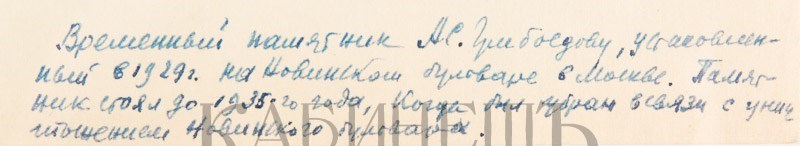 Временный памятник А.С. Грибоедову, установлен-
ный в 1929г. на Новинском бульваре в Москве. Памят-
ник стоял до 1935-го года, когда был убран в связи с унич
тожением Новинского бульвара.
КАБИНЕТЪ